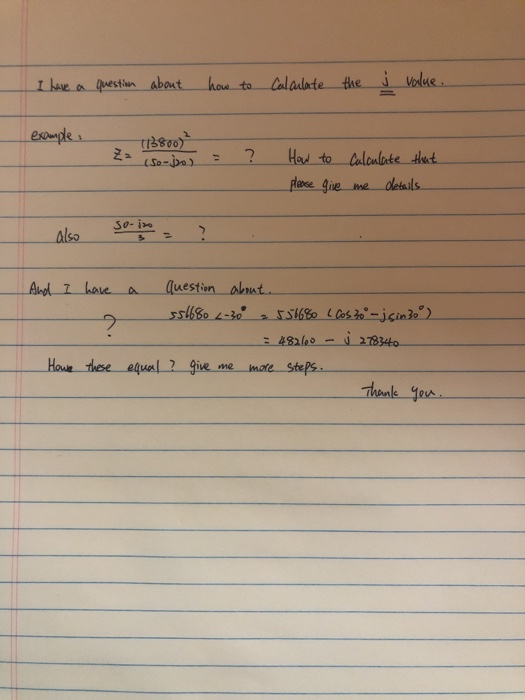 I have a question about how to Calculate the j value.
example: Z = (13800)² / (50-j20) = ? How to Calculate that
please give me details
also 50-j20 / 3 = ?
And I have a Question about.
? 556680 ∠-30° = 556680 (cos30°-jsin30°)
= 482100 - j 278340
How these equal? give me more steps.
Thank you.